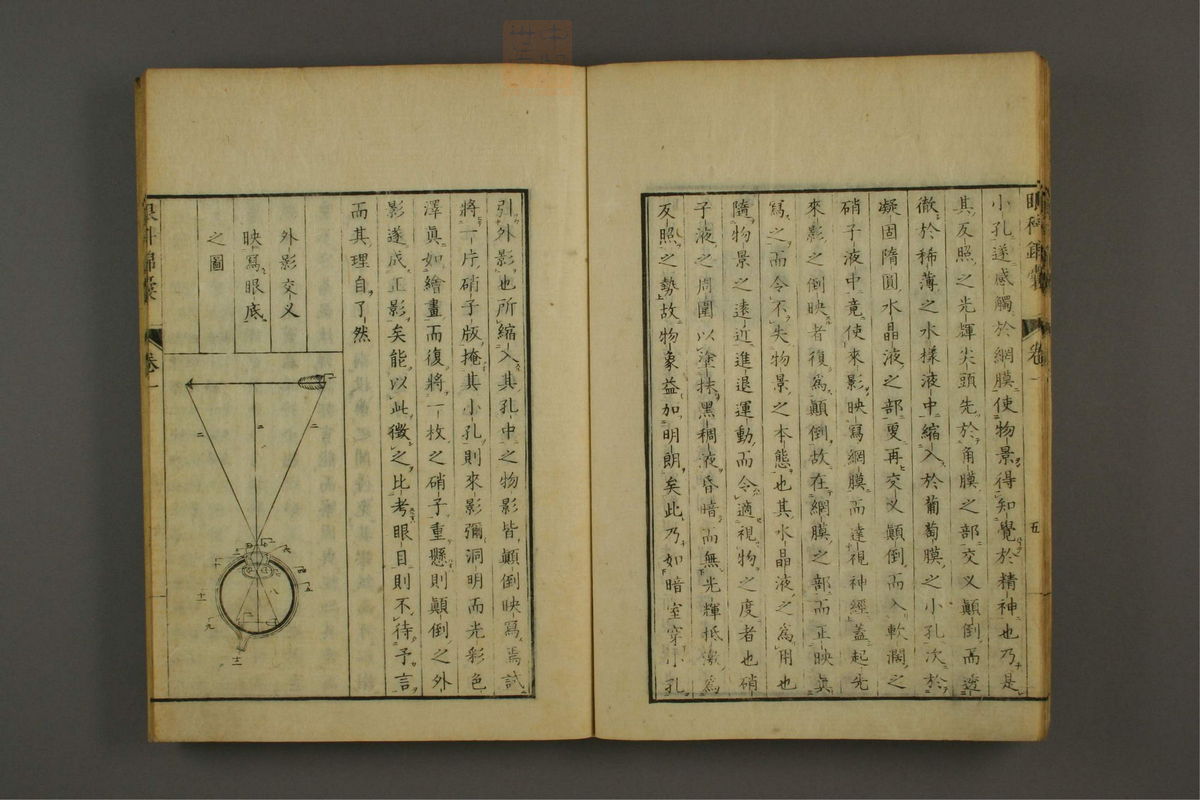 眼科錦囊 卷一 五
小孔遂感觸於網膜使物景得知覺於精神也乃是
其反照之光輝尖頭先於角膜之部交叉顛倒而透
徹於稀薄之水樣液中縮入於葡萄膜之小孔次於
凝固隋圓水晶液之部更再交叉顛倒而入軟濶之
硝子液中竟使來影映寫網膜而達視神經蓋起先
來影之倒映者復為顛倒故在網膜之部而正映真
寫之而令不失物景之本態也其水晶液之為用也
隨物景之遠近進退運動而令適視物之度者也硝
子液之周圍以塗抹黑稠液昏暗而無光輝抵激為
反照之勢故物象益加明朗矣此乃如暗室穿小孔
引外影也所縮入其孔中之物影皆顛倒映寫焉試
將一片硝子版掩其小孔則來影彌洞明而光彩色
澤真如繪畫而復將一枚之硝子重懸則顛倒之外
影遂成正影矣能以此徵之比考眼目則不待予言
而其理自了然
外影交叉
映寫眼底
之圖
眼科錦囊 卷一